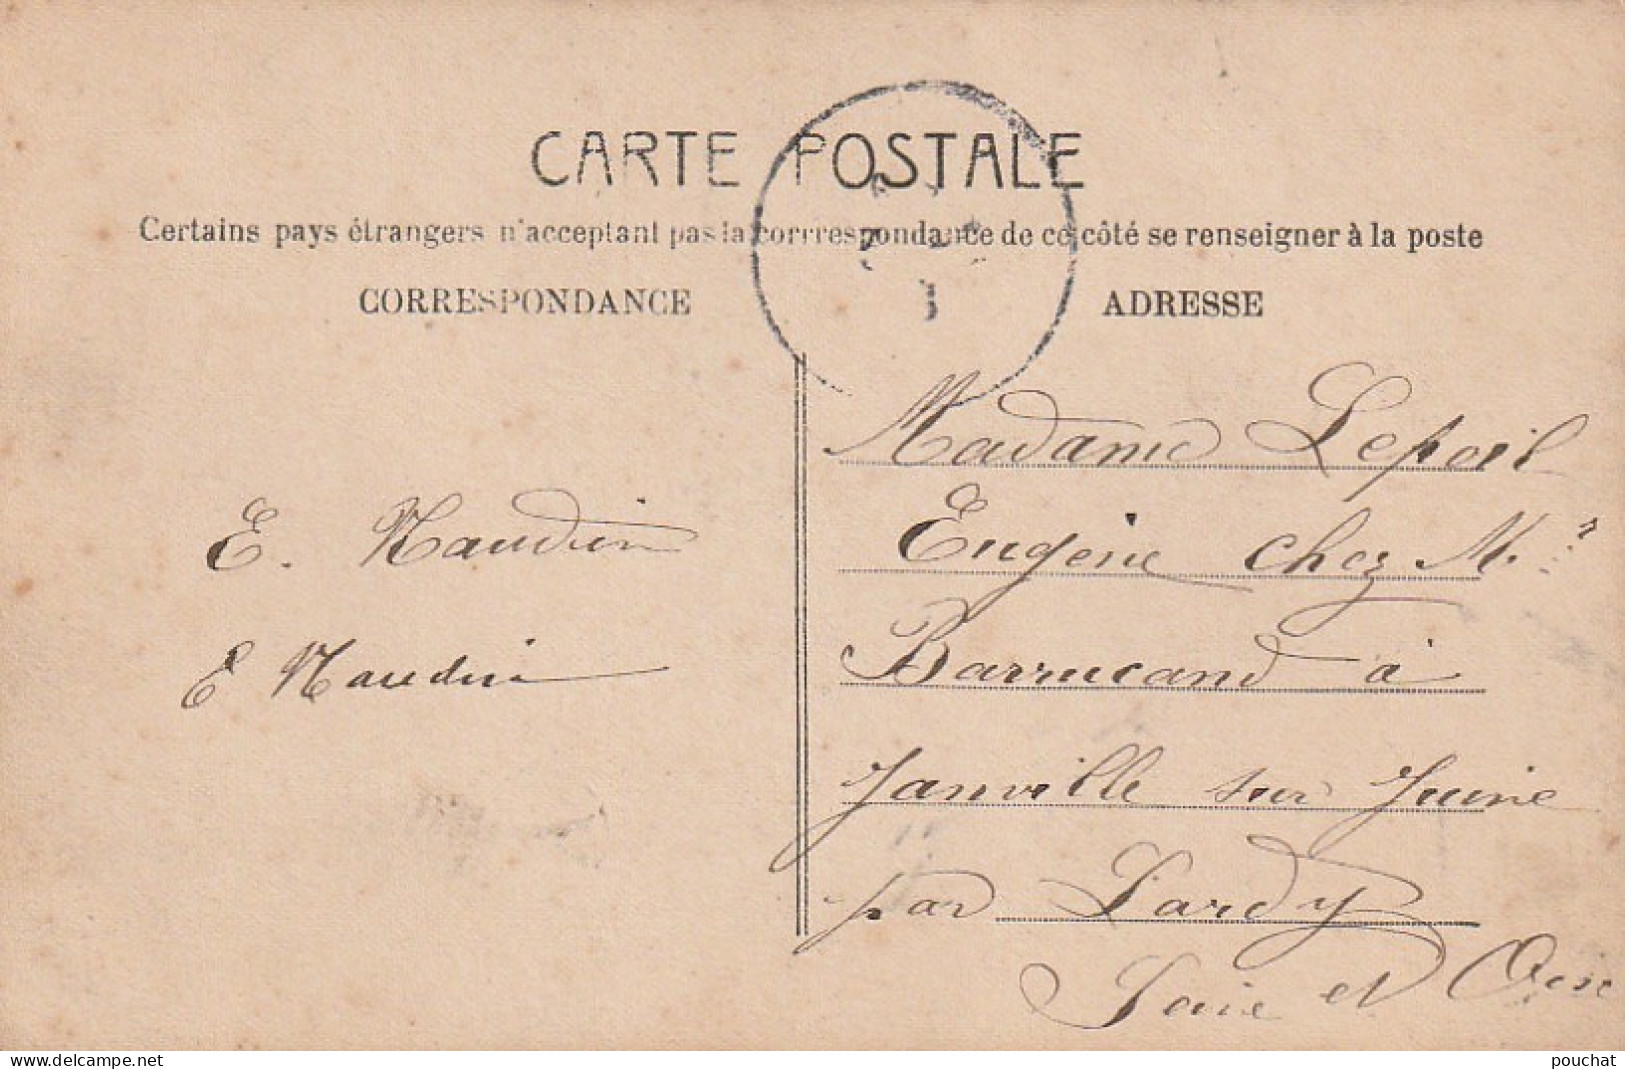 CARTE POSTALE
Certains pays étrangers n'acceptant pas la corrrespondance de ce côté se renseigner à la poste
CORRESPONDANCE
E. Naudin
E Naudin
ADRESSE
Madame Lepoil
Eugène chez M.r
Barrucand à
Janville sur Juine
par Lardy
Seine et Oise
delcampe.net
pouchat